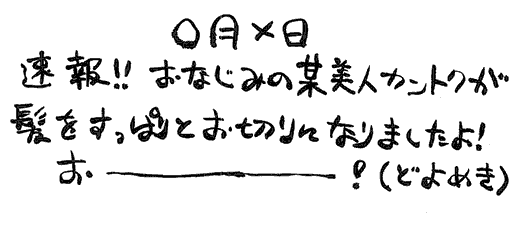 〇月×日
速報!! おなじみの某美人カントクが
髪をすっぱりとお切りになりましたよ!
お――――――!(どよめき)